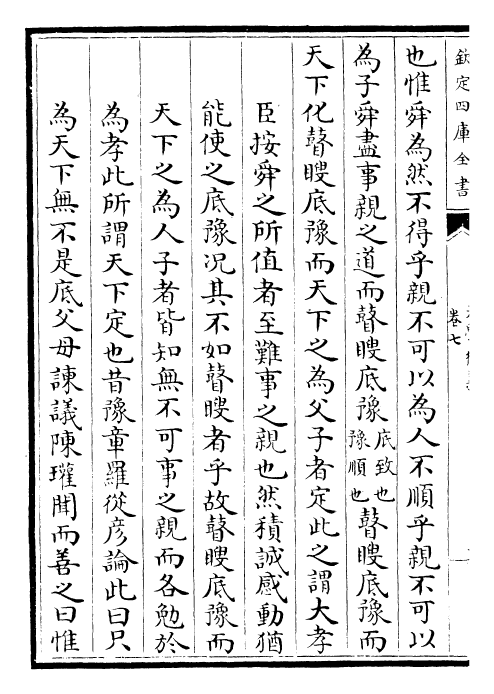 欽定四庫全書
卷七
也惟舜為然不得乎親不可以為人不順乎親不可以
為子舜盡事親之道而瞽瞍底豫底致也豫順也瞽瞍底豫而
天下化瞽瞍底豫而天下之為父子者定此之謂大孝
臣按舜之所值者至難事之親也然積誠感動猶
能使之底豫况其不如瞽瞍者乎故瞽瞍底豫而
天下之為人子者皆知無不可事之親而各勉於
為孝此所謂天下定也昔豫章羅從彦論此曰只
為天下無不是底父母諫議陳瓘聞而善之曰惟